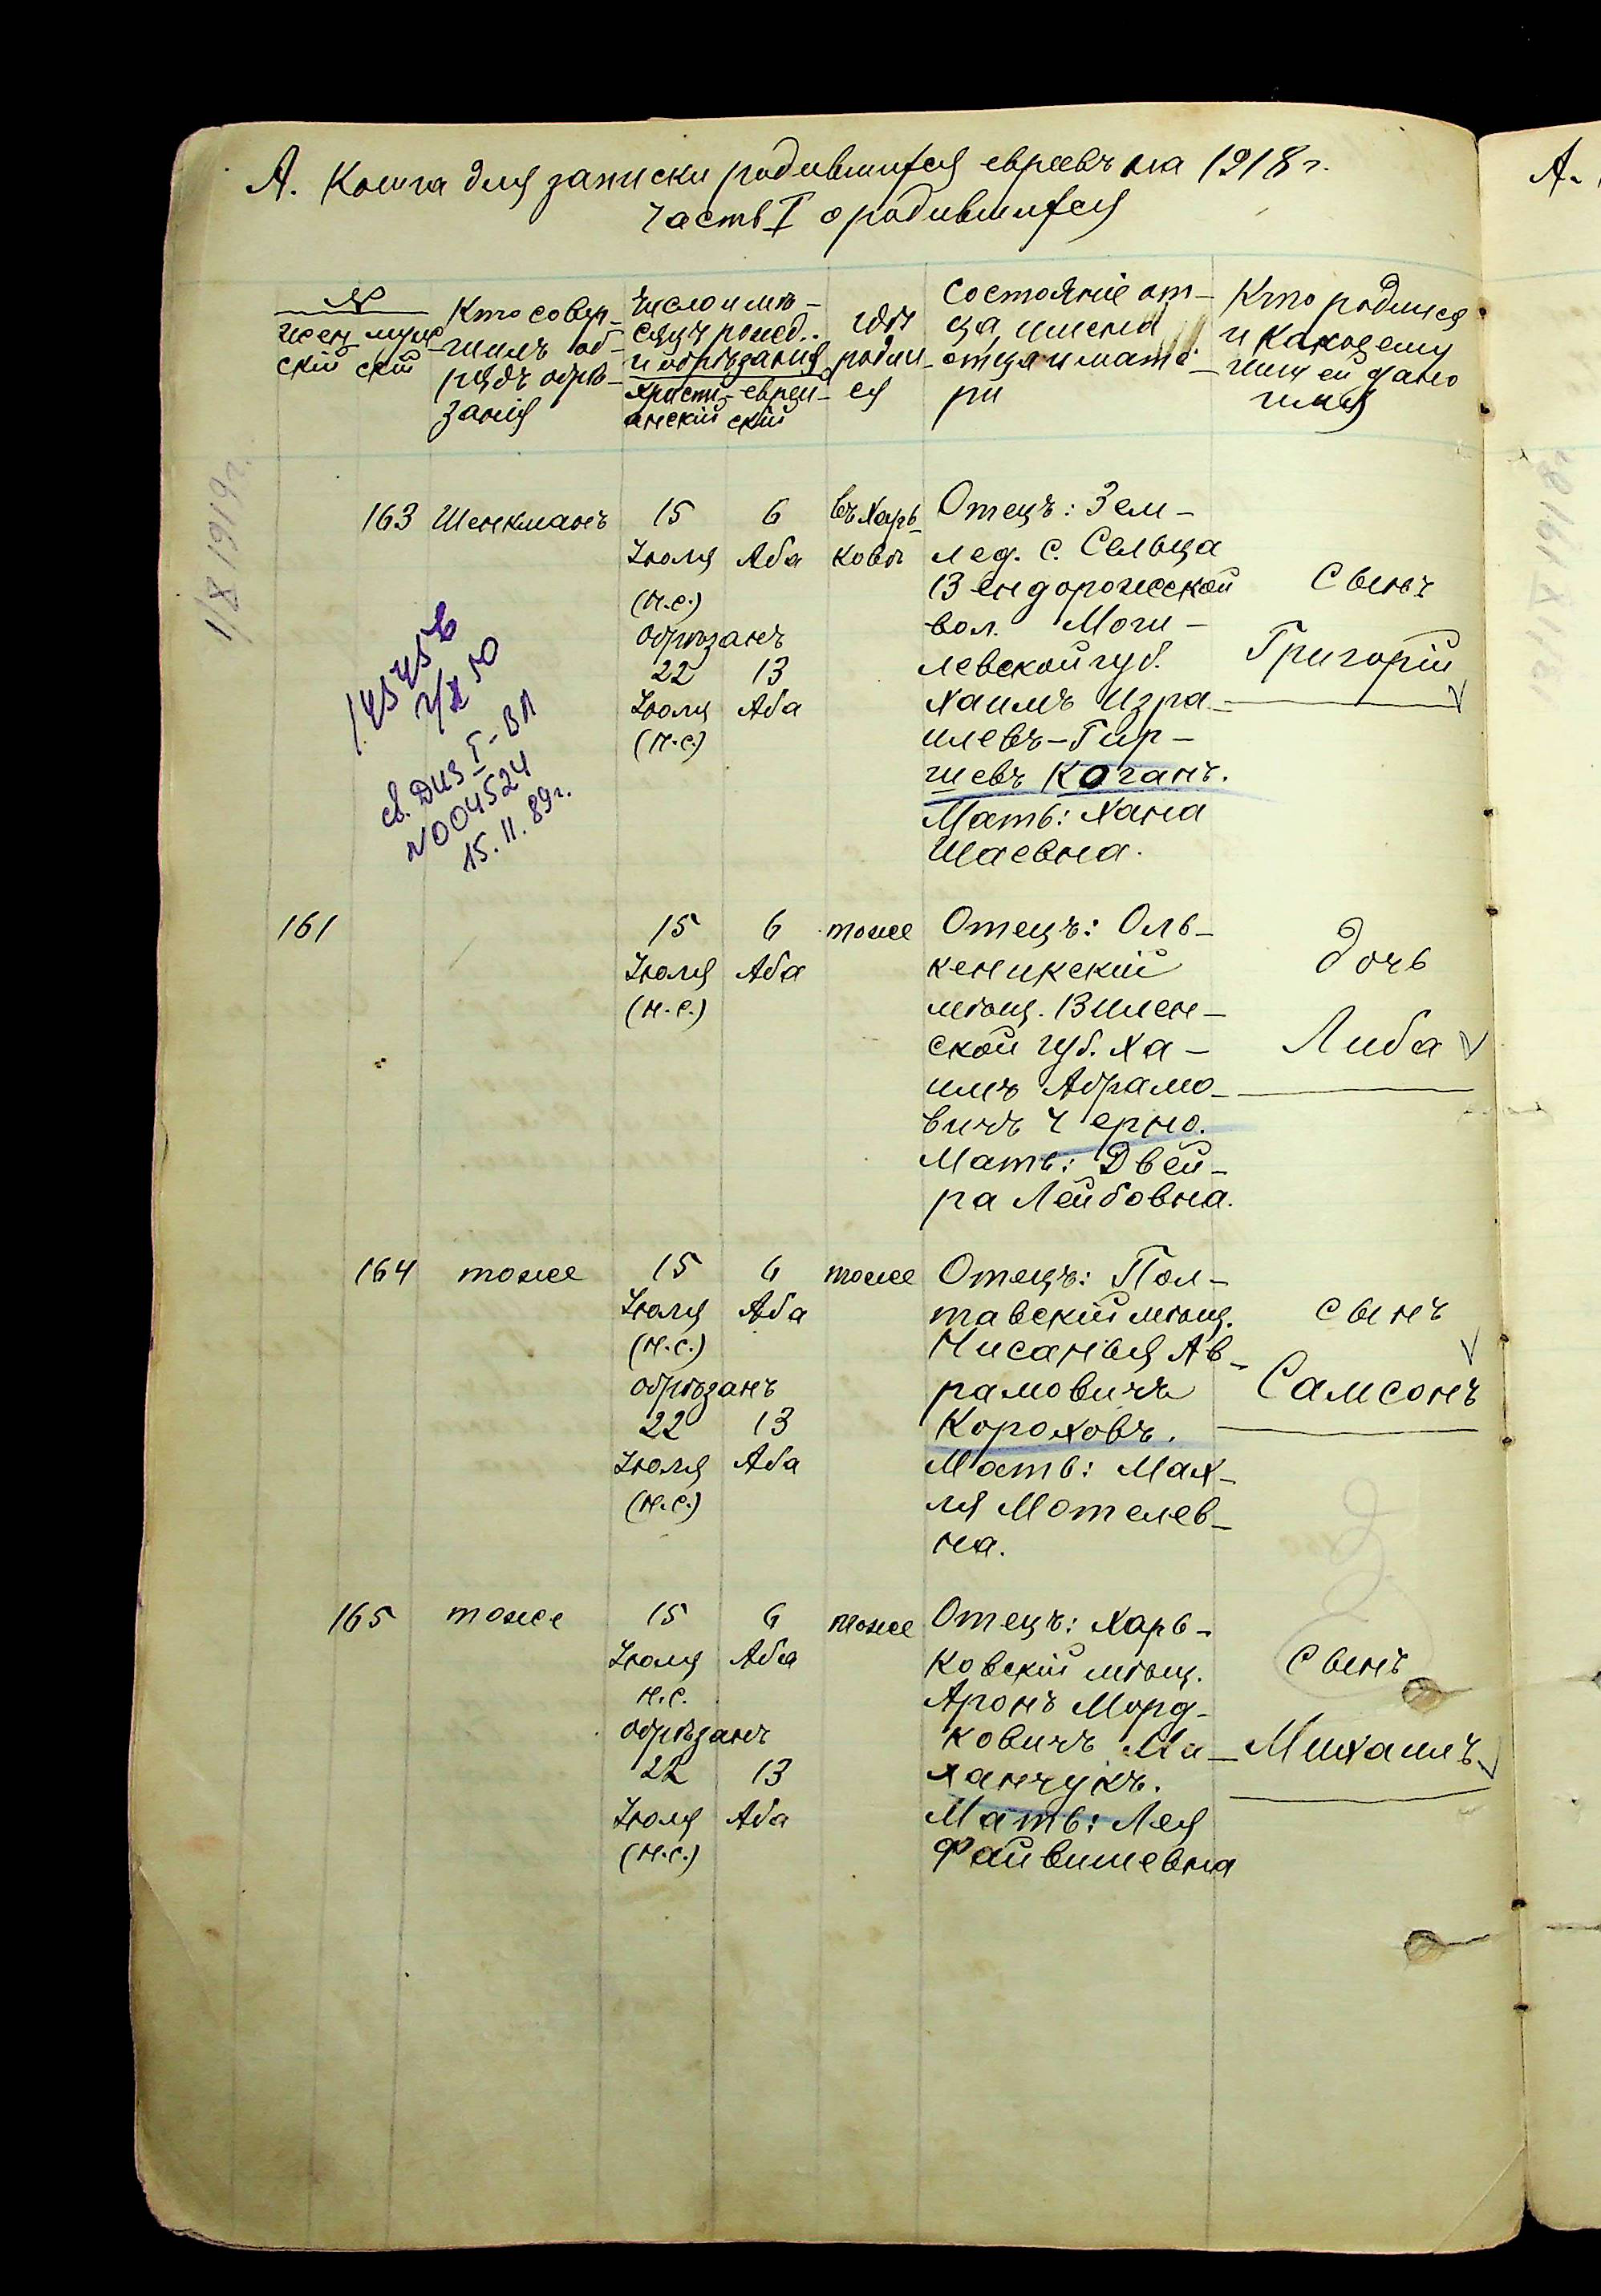 А. Книга для записки родившихся евреевъ на 1918 г.
Часть I о родившихся
№
женскій
мужескій
Кто совер-
шилъ об-
рядъ обрѣ-
занія
Число и мѣ-
сяцъ рожд.
и обрѣзанія
христі-
анскій
еврей-
скій
гдѣ
родил-
ся
Состояніе от-
ца, имена
отца и мате-
ри
Кто родился
и какое ему
или ей дано
имя
1/X 1919г.
163 Шенкманъ
15 6
Іюля Аба
(н.с.)
обрѣзанъ
22 13
Іюля Аба
(н.с.)
въ Харь-
ковѣ
Отецъ: Зем-
лед. с. Сельца
вол. Моги-
левской губ.
Хаимъ Изра-
илевъ-Гир-
шевъ Коганъ.
Мать: Хана
Шаевна.
Сынъ
Григорій
св. ДИЗ I-ВЛ
N004524
15.11.89г.
161
15 6
Іюля Аба
(н.с.)
тоже
Отецъ: Оль-
кеникскій
мѣщ. Вилен-
ской губ. Ха-
имъ Абрамо-
вичъ Черно.
Мать: Двей-
ра Лейбовна.
Дочь
Либа
164 тоже
15 6
Іюля Аба
(н.с.)
обрѣзанъ
22 13
Іюля Аба
(н.с.)
тоже
Отецъ: Пол-
тавскій мѣщ.
Нисанъ Ав-
рамовичъ
Короховъ.
Мать: Мах-
ля Мотелев-
на.
сынъ
Самсонъ
165 тоже
15 6
Іюля Аба
н.с.
обрѣзанъ
22 13
Іюля Аба
(н.с.)
тоже
Отецъ: Харь-
ковскій мѣщ.
Аронъ Морд-
ковичъ Ма-
ханчукъ.
Мать: Лея
Файвишевна
сынъ
Михаилъ
А.